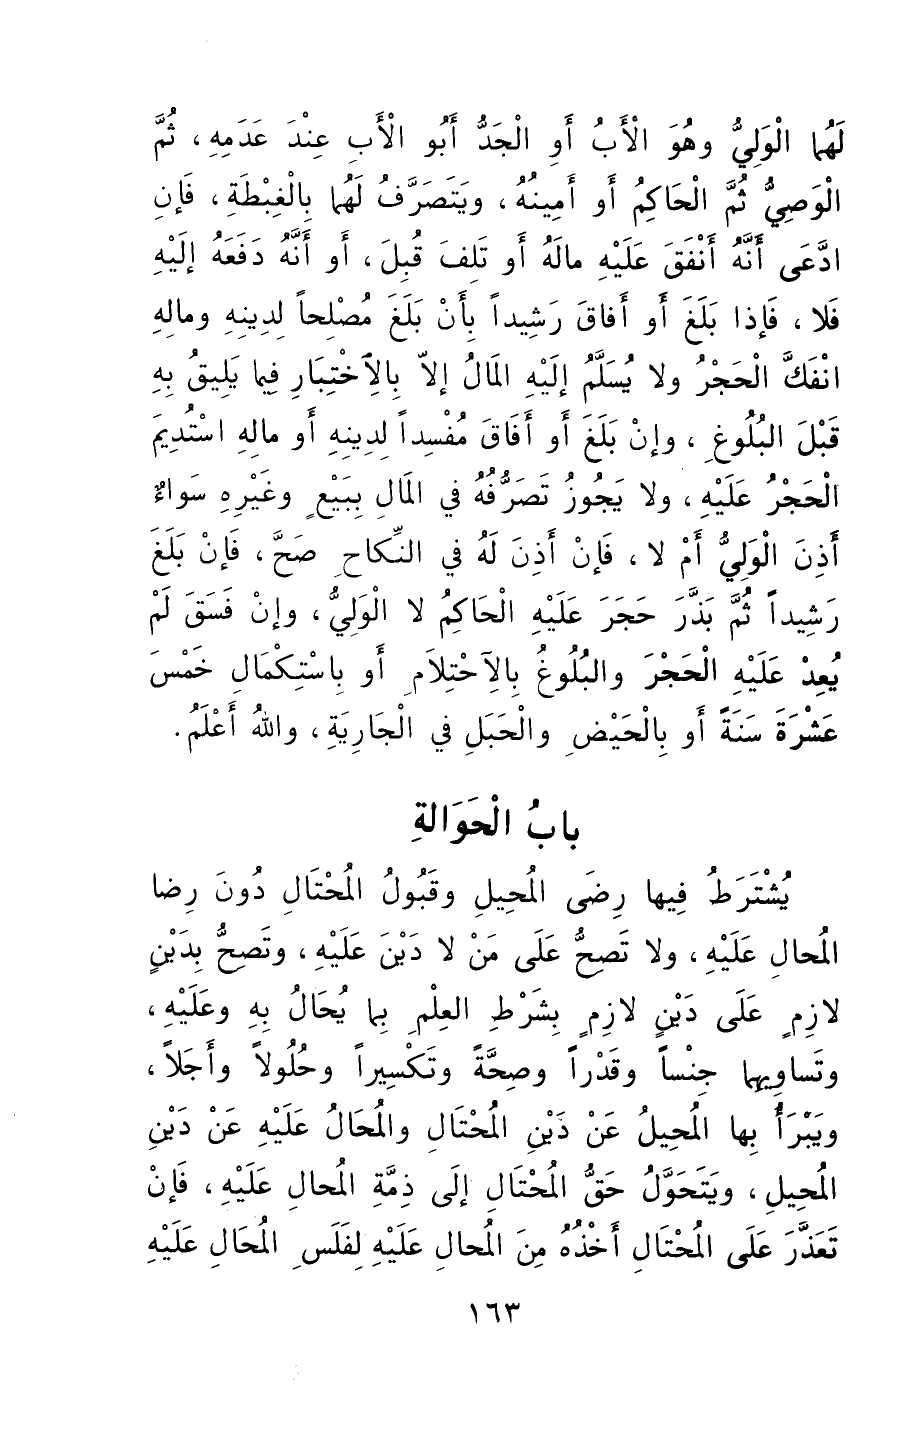 لَهُما الْوَلِيُّ وهُوَ الْأَبُ أَوِ الْجَدُّ أَبُو الْأَبِ عِنْدَ عَدَمِهِ ، ثُمَّ
الْوَصِيُّ ثُمَّ الْحَاكِمُ أَو أَمِينُهُ ، ويَتَصَرَّفُ لَهُما بِالْغِبْطَةِ ، فَإِنِ
ادَّعَى أَنَّهُ أَنْفَقَ عَلَيْهِ مالَهُ أَو تَلِفَ قُبِلَ ، أَو أَنَّهُ دَفَعَهُ إِلَيْهِ
فَلا ، فَإِذا بَلَغَ أَو أَفاقَ رَشِيداً بِأَنْ بَلَغَ مُصْلِحاً لِدِينِهِ ومالِهِ
انْفَكَّ الْحَجْرُ ولا يُسَلَّمُ إِلَيْهِ المَالُ إِلاّ بِالِاخْتِبَارِ فِيما يَلِيقُ بِهِ
قَبْلَ البُلُوغِ ، وإِنْ بَلَغَ أَو أَفَاقَ مُفْسِداً لِدِينِهِ أَو مالِهِ اسْتُدِيمَ
الْحَجْرُ عَلَيْهِ ، ولا يَجُوزُ تَصَرُّفُهُ فِي المَالِ بِبَيْعٍ وغَيْرِهِ سَواءٌ
أَذِنَ الْوَلِيُّ أَمْ لا ، فَإِنْ أَذِنَ لَهُ فِي النِّكاحِ صَحَّ ، فَإِنْ بَلَغَ
رَشِيداً ثُمَّ بَذَّرَ حَجَرَ عَلَيْهِ الْحَاكِمُ لا الْوَلِيُّ ، وإِنْ فَسَقَ لَمْ
يُعِدْ عَلَيْهِ الْحَجْرَ والبُلُوغُ بِالِاحْتِلَامِ أَو بِاسْتِكْمَالِ خَمْسَ
عَشْرَةَ سَنَةً أَو بِالْحَيْضِ والْحَبَلِ فِي الْجَارِيَةِ ، واللهُ أَعْلَمُ .
بابُ الْحَوَالةِ
يُشْتَرَطُ فِيها رِضَى المُحِيلِ وقَبُولُ المُحْتَالِ دُونَ رِضا
المُحالِ عَلَيْهِ ، ولا تَصِحُّ عَلَى مَنْ لا دَيْنَ عَلَيْهِ ، وتَصِحُّ بِدَيْنٍ
لازِمٍ عَلَى دَيْنٍ لازِمٍ بِشَرْطِ العِلْمِ بِما يُحَالُ بِهِ وعَلَيْهِ ،
وتَساوِيهِما جِنْساً وقَدْراً وصِحَّةً وتَكْسِيراً وحُلُولاً وأَجَلاً ،
ويَبْرَأُ بِها المُحِيلُ عَنْ دَيْنِ المُحْتَالِ والمُحَالُ عَلَيْهِ عَنْ دَيْنِ
المُحِيلِ ، ويَتَحَوَّلُ حَقُّ المُحْتَالِ إِلَى ذِمَّةِ المُحالِ عَلَيْهِ ، فَإِنْ
تَعَذَّرَ عَلَى المُحْتَالِ أَخْذُهُ مِنَ المُحالِ عَلَيْهِ لِفَلَسِ المُحَالِ عَلَيْهِ
١٦٣